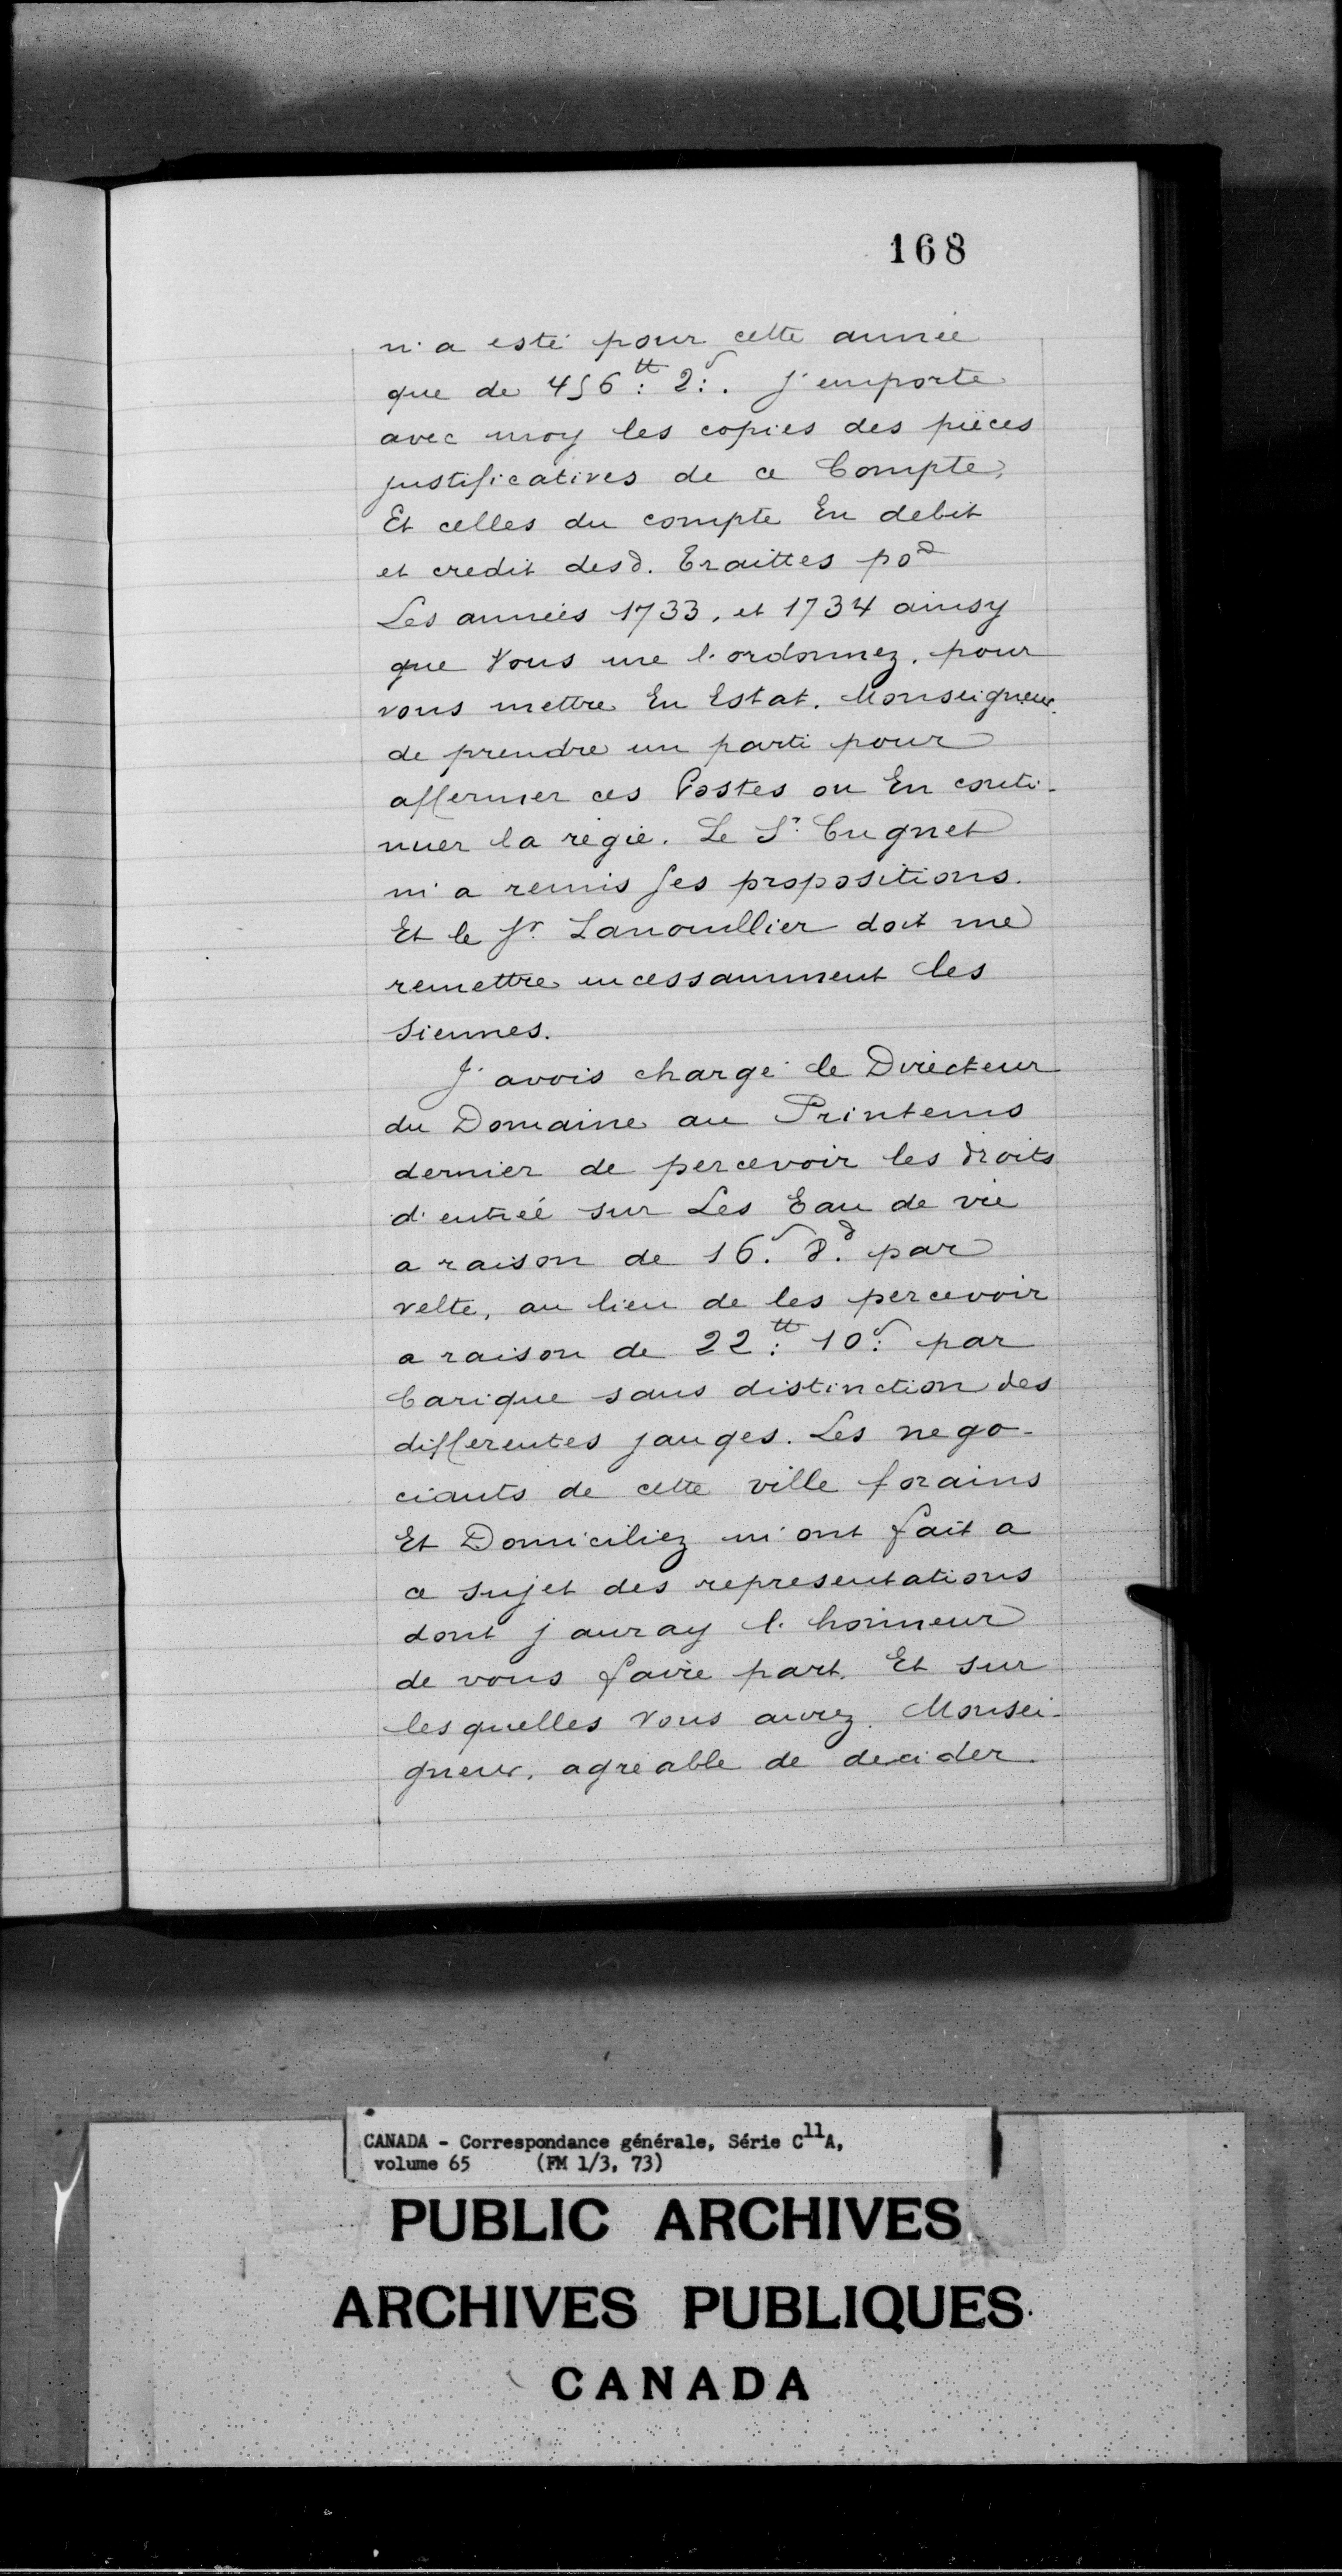 168
n'a esté pour cette année
que de 456.tt 2.s. J'emporte
avec moy les copies des piéces
justificatives de ce Compte,
Et celles du compte En debit
et credit desd. Traittes po.
Les années 1733. et 1734 ainsy
que Vous me l'ordonnez. pour
vous mettre En Estat. Monseigneur.
de prendre un parti pour
affermer ces Postes ou En conti-
nuer la régie. Le Sr. Cugnet
m'a remis ses propositions.
Et le Sr. Lanoullier doit me
remettre incessamment les
Siennes.
J'avois chargé le Directeur
du Domaine au Printems
dernier de percevoir les droits
d'entrée sur Les Eau de vie
a raison de 16.s 8.d par
velte, au lieu de les percevoir
a raison de 22.tt 10.s par
barique sans distinction des
differentes jauges. Les nego-
ciants de cette ville forains
Et Domiciliez m'ont fait a
ce sujet des representations
dont j auray l'honneur
de vous faire part. Et sur
lesquelles Vous aurez. Monsei-
gneur. agréable de decider.
CANADA - Correspondance générale, Série C11A,
volume 65 (FM 1/3, 73)
PUBLIC ARCHIVES
ARCHIVES PUBLIQUES
CANADA